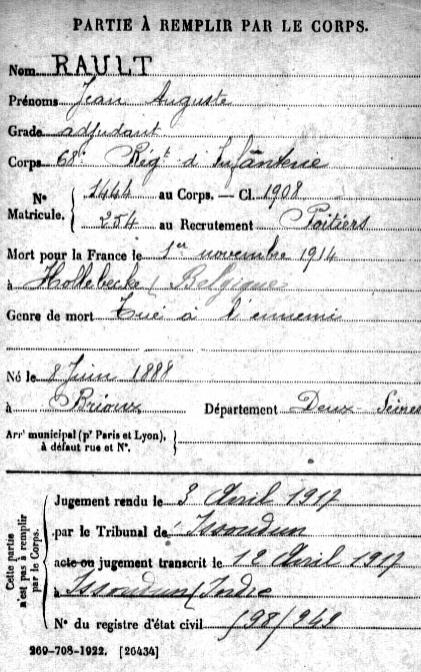 PARTIE À REMPLIR PAR LE CORPS.
Nom RAULT
Prénoms Jean Auguste
Grade adjudant
Corps 68e Régt d'Infanterie
No Matricule. { 1444 au Corps. — Cl. 1908
254 au Recrutement Poitiers
Mort pour la France le 1er novembre 1914
à Hollebecke (Belgique)
Genre de mort Tué à l'ennemi
Né le 8 Juin 1888
à Brioux Département Deux Sèvres
Arrt municipal (pr Paris et Lyon), à défaut rue et No. }
Cette partie n'est pas à remplir par le Corps.
Jugement rendu le 3 Avril 1917
par le Tribunal de Issoudun
acte ou jugement transcrit le 12 Avril 1917
à Issoudun (Indre
No du registre d'état civil 198/249
269-708-1922. [26434]